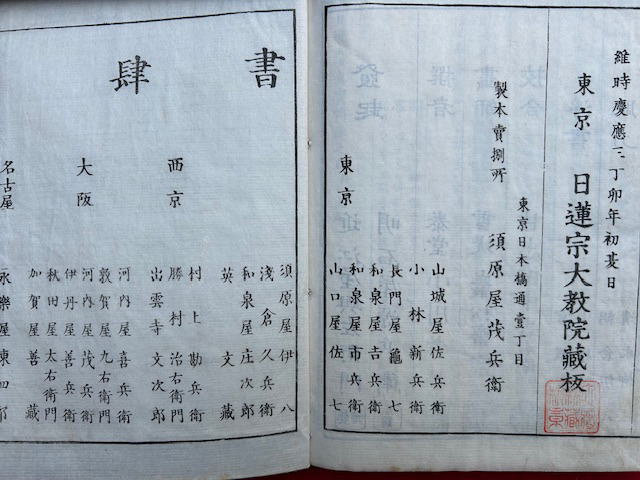 維時慶應三丁卯年初夏日
東京 日蓮宗大教院藏板
製本賣捌所
東京日本橋通壹丁目
須原屋茂兵衛
東京
山城屋佐兵衛
小林新兵衛
長門屋龜七
和泉屋吉兵衛
和泉屋市兵衛
山口屋佐七
書肆
須原屋伊八
淺倉久兵衛
和泉屋庄次郎
英文藏
西京
村上勘兵衛
勝村治右衛門
出雲寺文次郎
大阪
河内屋喜兵衛
敦賀屋九右衛門
河内屋茂兵衛
伊丹屋善兵衛
秋田屋太右衛門
加賀屋善藏
名古屋
永樂屋東四郎